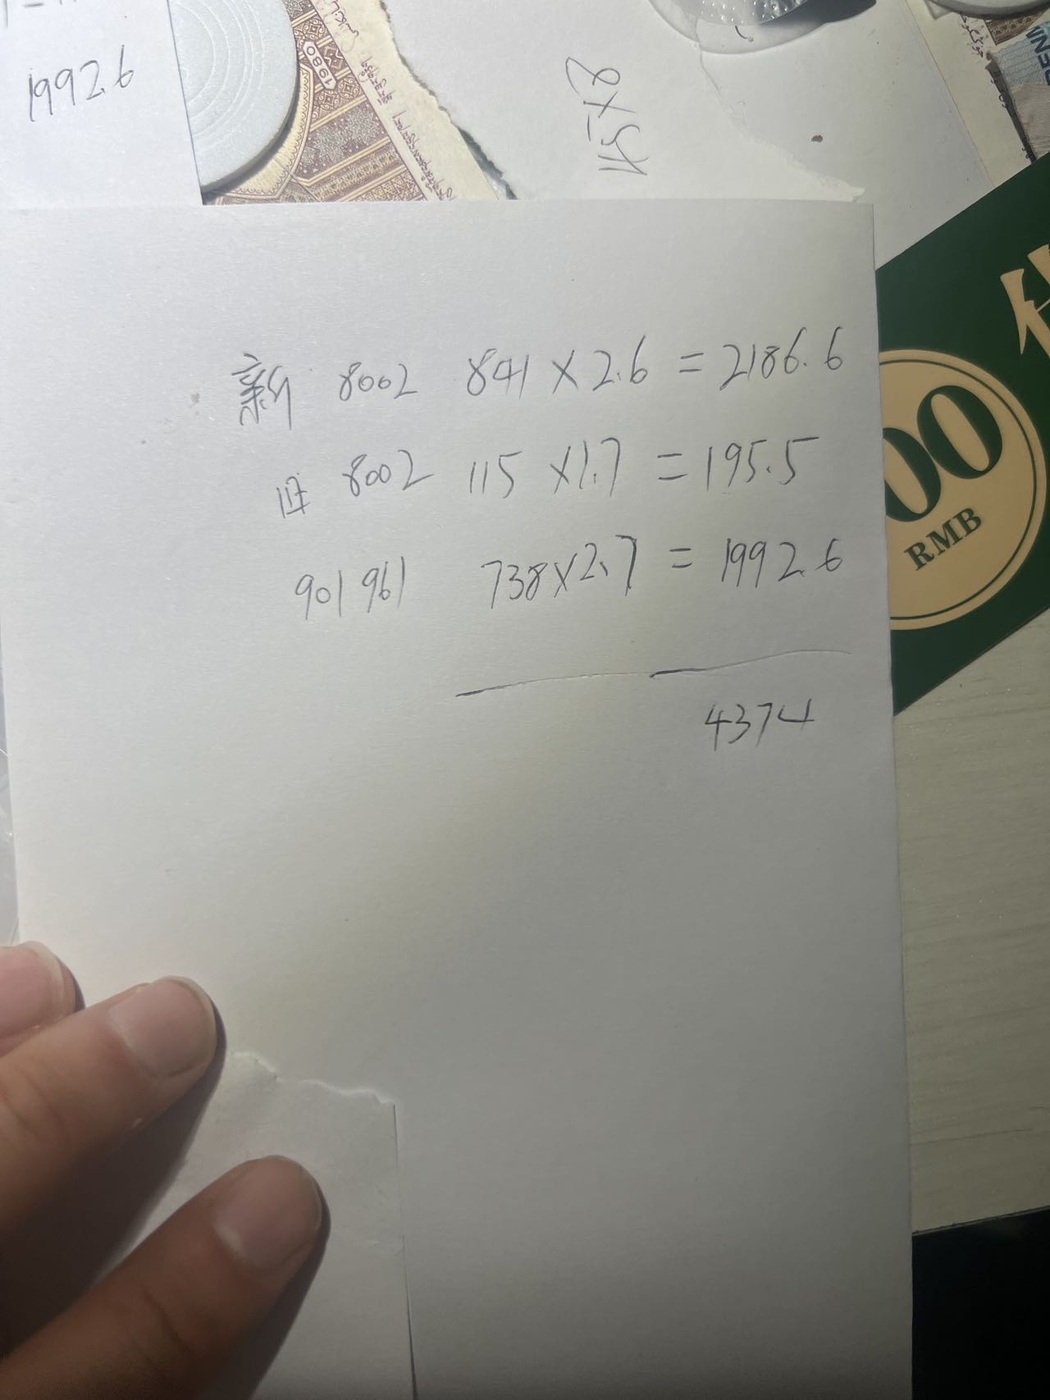 1992.6
1980
45×8
新 8002 841×2.6=2186.6
旧 8002 115×1.7=195.5
901 961 738×2.7=1992.6
4374
00
RMB